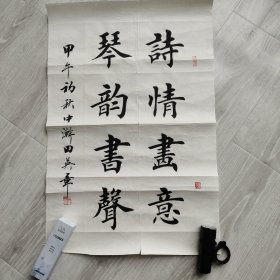 詩情畫意
琴韵書聲
甲午初秋中瀚田英章